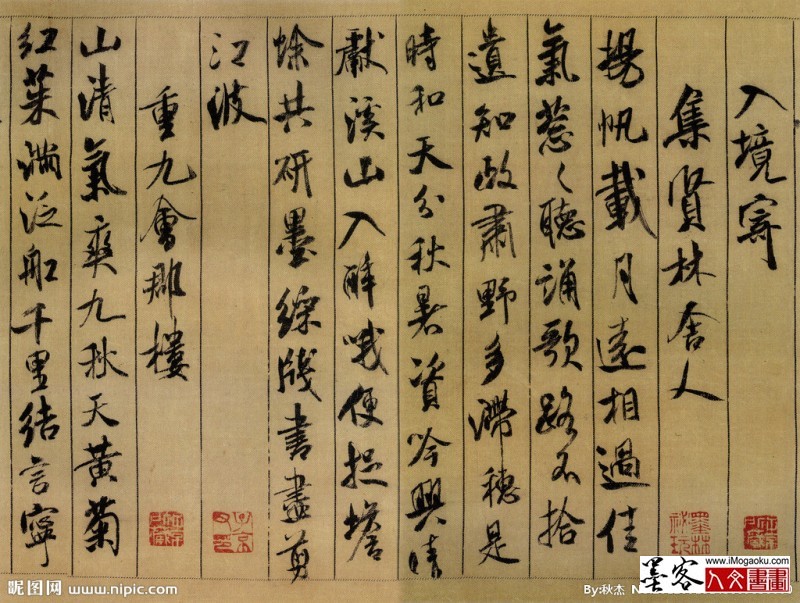 入境寄
集賢林舍人
揚帆載月遠相過佳
氣葱々聽誦歌路不拾
遺知政肅野多滯穗是
時和天分秋暑資吟興晴
獻溪山入醉哦便捉蟾
蜍共研墨綵牋書盡剪
江波
重九會郡樓
山清氣爽九秋天黃菊
紅茱滿泛船千里結言寧
墨林秘玩
昵图网 www.nipic.com
By:秋杰
墨客
www.iMogaoku.com
人文書畫